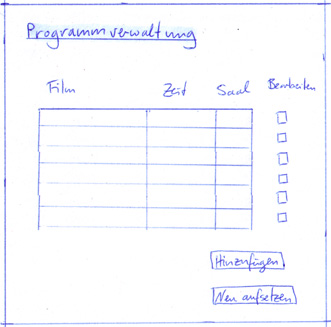 Programmverwaltung
Film Zeit Saal Bearbeiten
Hinzufügen
Neu aufsetzen